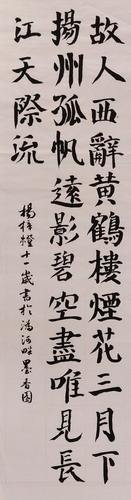 故人西辭黃鶴樓煙花三月下
揚州孤帆遠影碧空盡唯見長
江天際流
楊梓橙十一歲書於鴻河畔墨香園